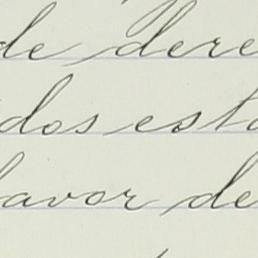 de dere
dos esta
favor de